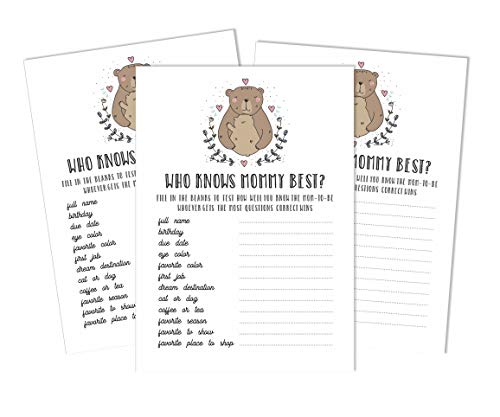 WHO KNOWS MOMMY BEST?
FILL IN THE BLANDS TO TEST
WHOEVER GETS THE M
full name
birthday
due date
eye color
favorite color
first job
dream destination
cat or dog
coffee or tea
favorite season
favorite to show
favorite place to
WHO KNOWS MOMMY BEST?
FILL IN THE BLANDS TO TEST HOW WELL YOU KNOW THE MOM-TO-BE
WHOEVER GETS THE MOST QUESTIONS CORRECT WINS
full name
birthday
due date
eye color
favorite color
first job
dream destination
cat or dog
coffee or tea
favorite season
favorite to show
favorite place to shop
MOMMY BEST?
WELL YOU KNOW THE MOM-TO-BE
QUESTIONS CORRECT WINS